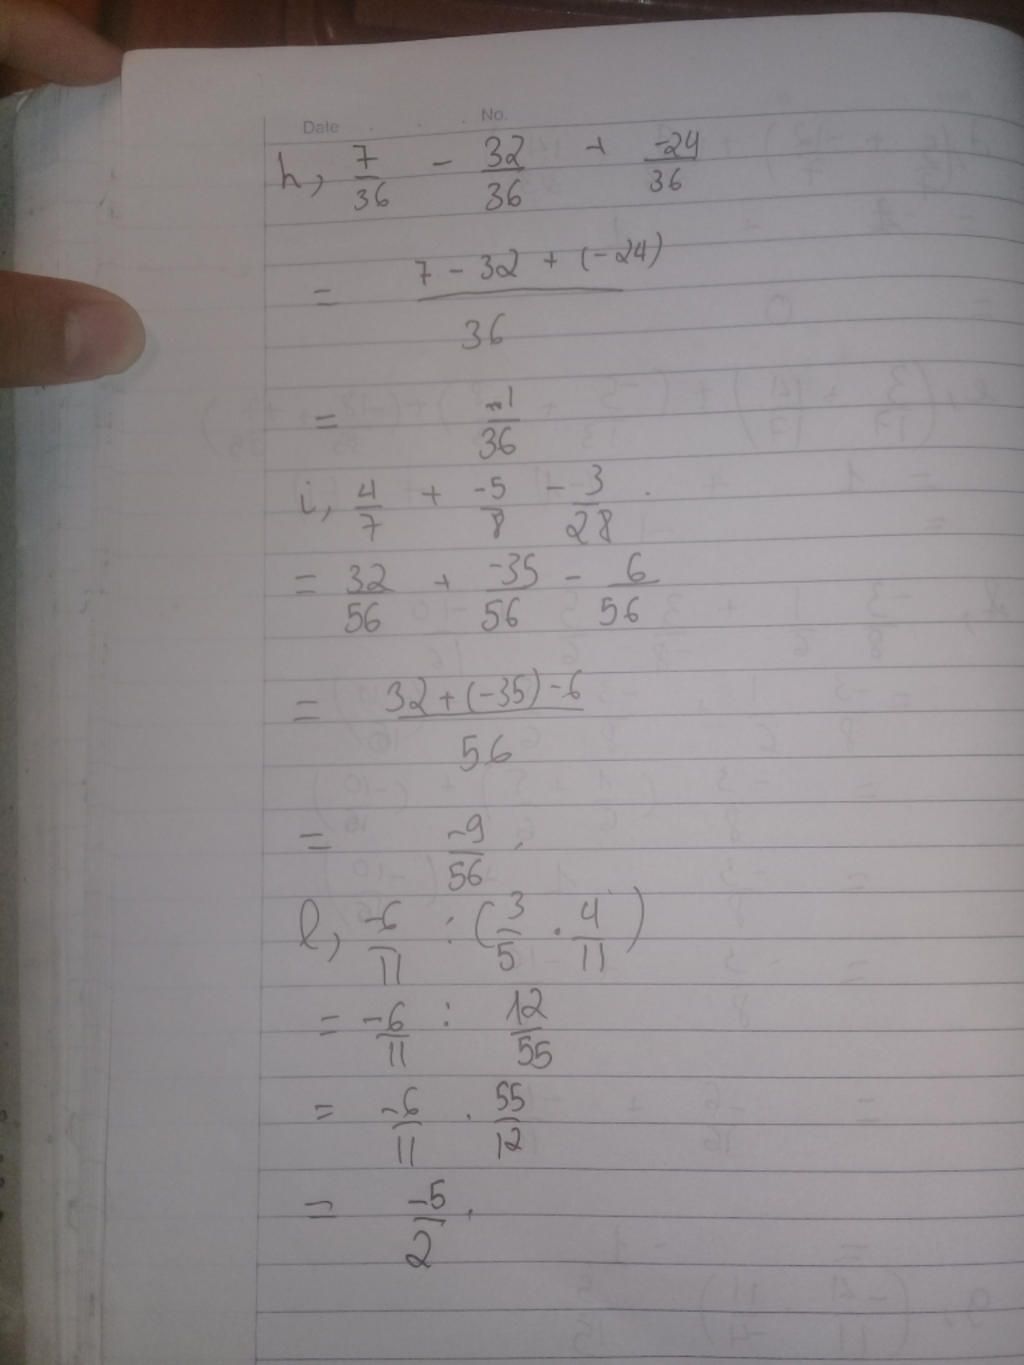 Date No.
h, 7/36 - 32/36 + -24/36
= 7 - 32 + (-24) / 36
= -1/36
i, 4/7 + -5/8 - 3/28
= 32/56 + -35/56 - 6/56
= 32 + (-35) - 6 / 56
= -9/56.
l, -6/11 : (3/5 . 4/11)
= -6/11 : 12/55
= -6/11 . 55/12
= -5/2.